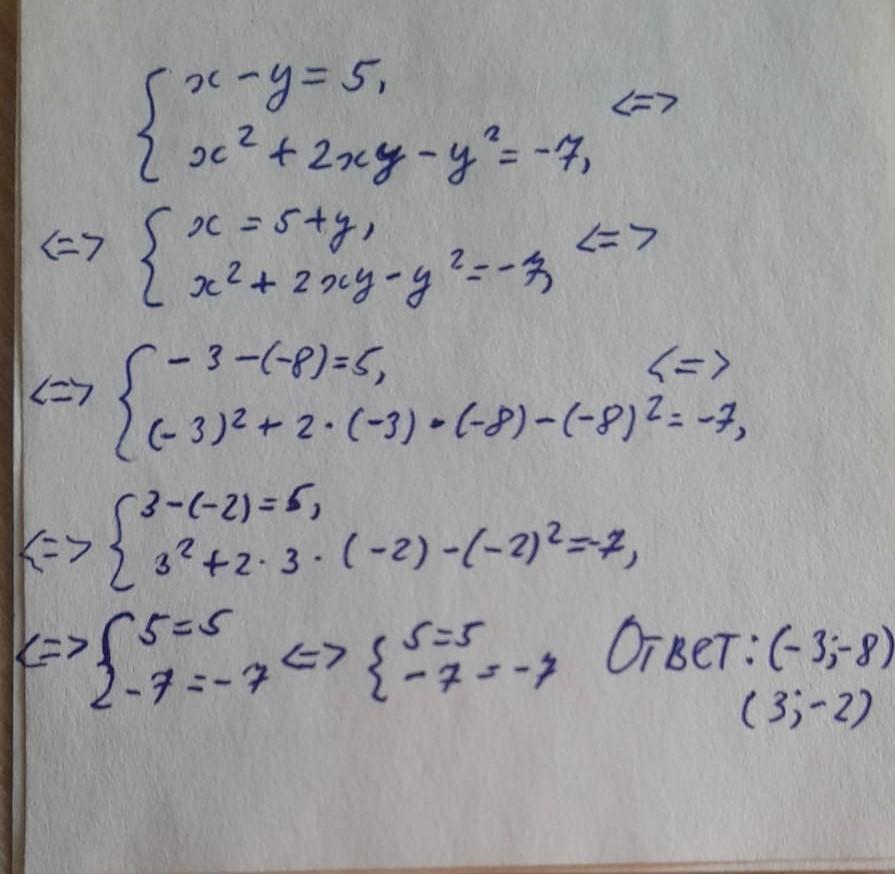 { x - y = 5, <=>
x² + 2xy - y² = -7,
<=> { x = 5 + y, <=>
x² + 2xy - y² = -7,
<=> { -3 - (-8) = 5, <=>
(-3)² + 2 · (-3) · (-8) - (-8)² = -7,
<=> { 3 - (-2) = 5,
3² + 2 · 3 · (-2) - (-2)² = -7,
<=> { 5 = 5 <=> { 5 = 5 Ответ: (-3;-8)
-7 = -7 -7 = -7 (3;-2)